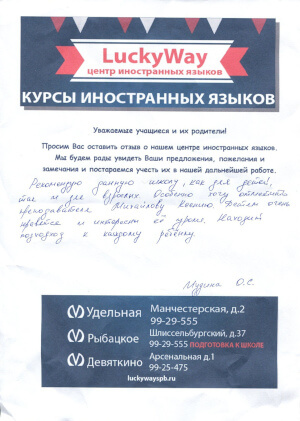 LuckyWay
центр иностранных языков
КУРСЫ ИНОСТРАННЫХ ЯЗЫКОВ
Уважаемые учащиеся и их родители!
Просим Вас оставить отзыв о нашем центре иностранных языков.
Мы будем рады увидеть Ваши предложения, пожелания и
замечания и постараемся учесть их в нашей дальнейшей работе.
Рекомендую данную школу, как для детей,
так и для взрослых. Особенно хочу отметить
преподавателя Михайлову Ксению. Детям очень
нравятся и интересны её уроки. Находит
подход к каждому ребёнку.
О.С.
Удельная Манчестерская, д.2
99-29-555
Рыбацкое Шлиссельбургский, д.37
99-29-555 ПОДГОТОВКА К ШКОЛЕ
Девяткино Арсенальная д.1
99-25-475
luckywayspb.ru